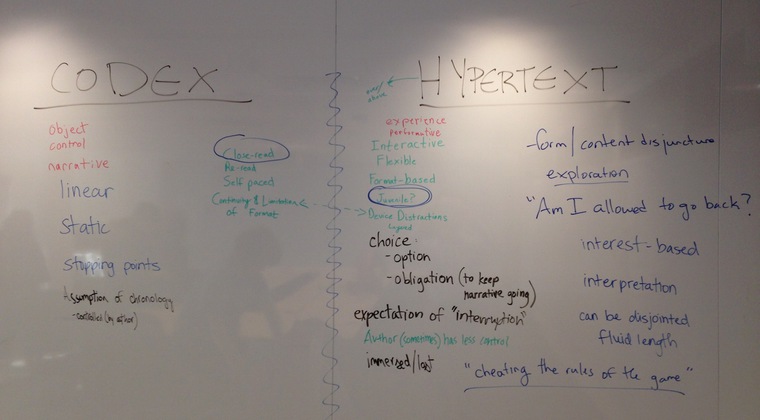 CODEX
object
control
narrative
linear
static
stopping points
Assumption of chronology
- controlled (by author)
Close-read
Re-read
Self paced
Continuity & Limitation
of Format
HYPERTEXT
experience
performative
Interactive
Flexible
Format-based
Juvenile?
Device Distractions
choice:
- option
- obligation (to keep
narrative going)
expectation of "interruption"
Author (sometimes) has less control
immersed/lost
-form/content disjuncture
exploration
"Am I allowed to go back?
interest-based
interpretation
can be disjointed
fluid length
"cheating the rules of the game"